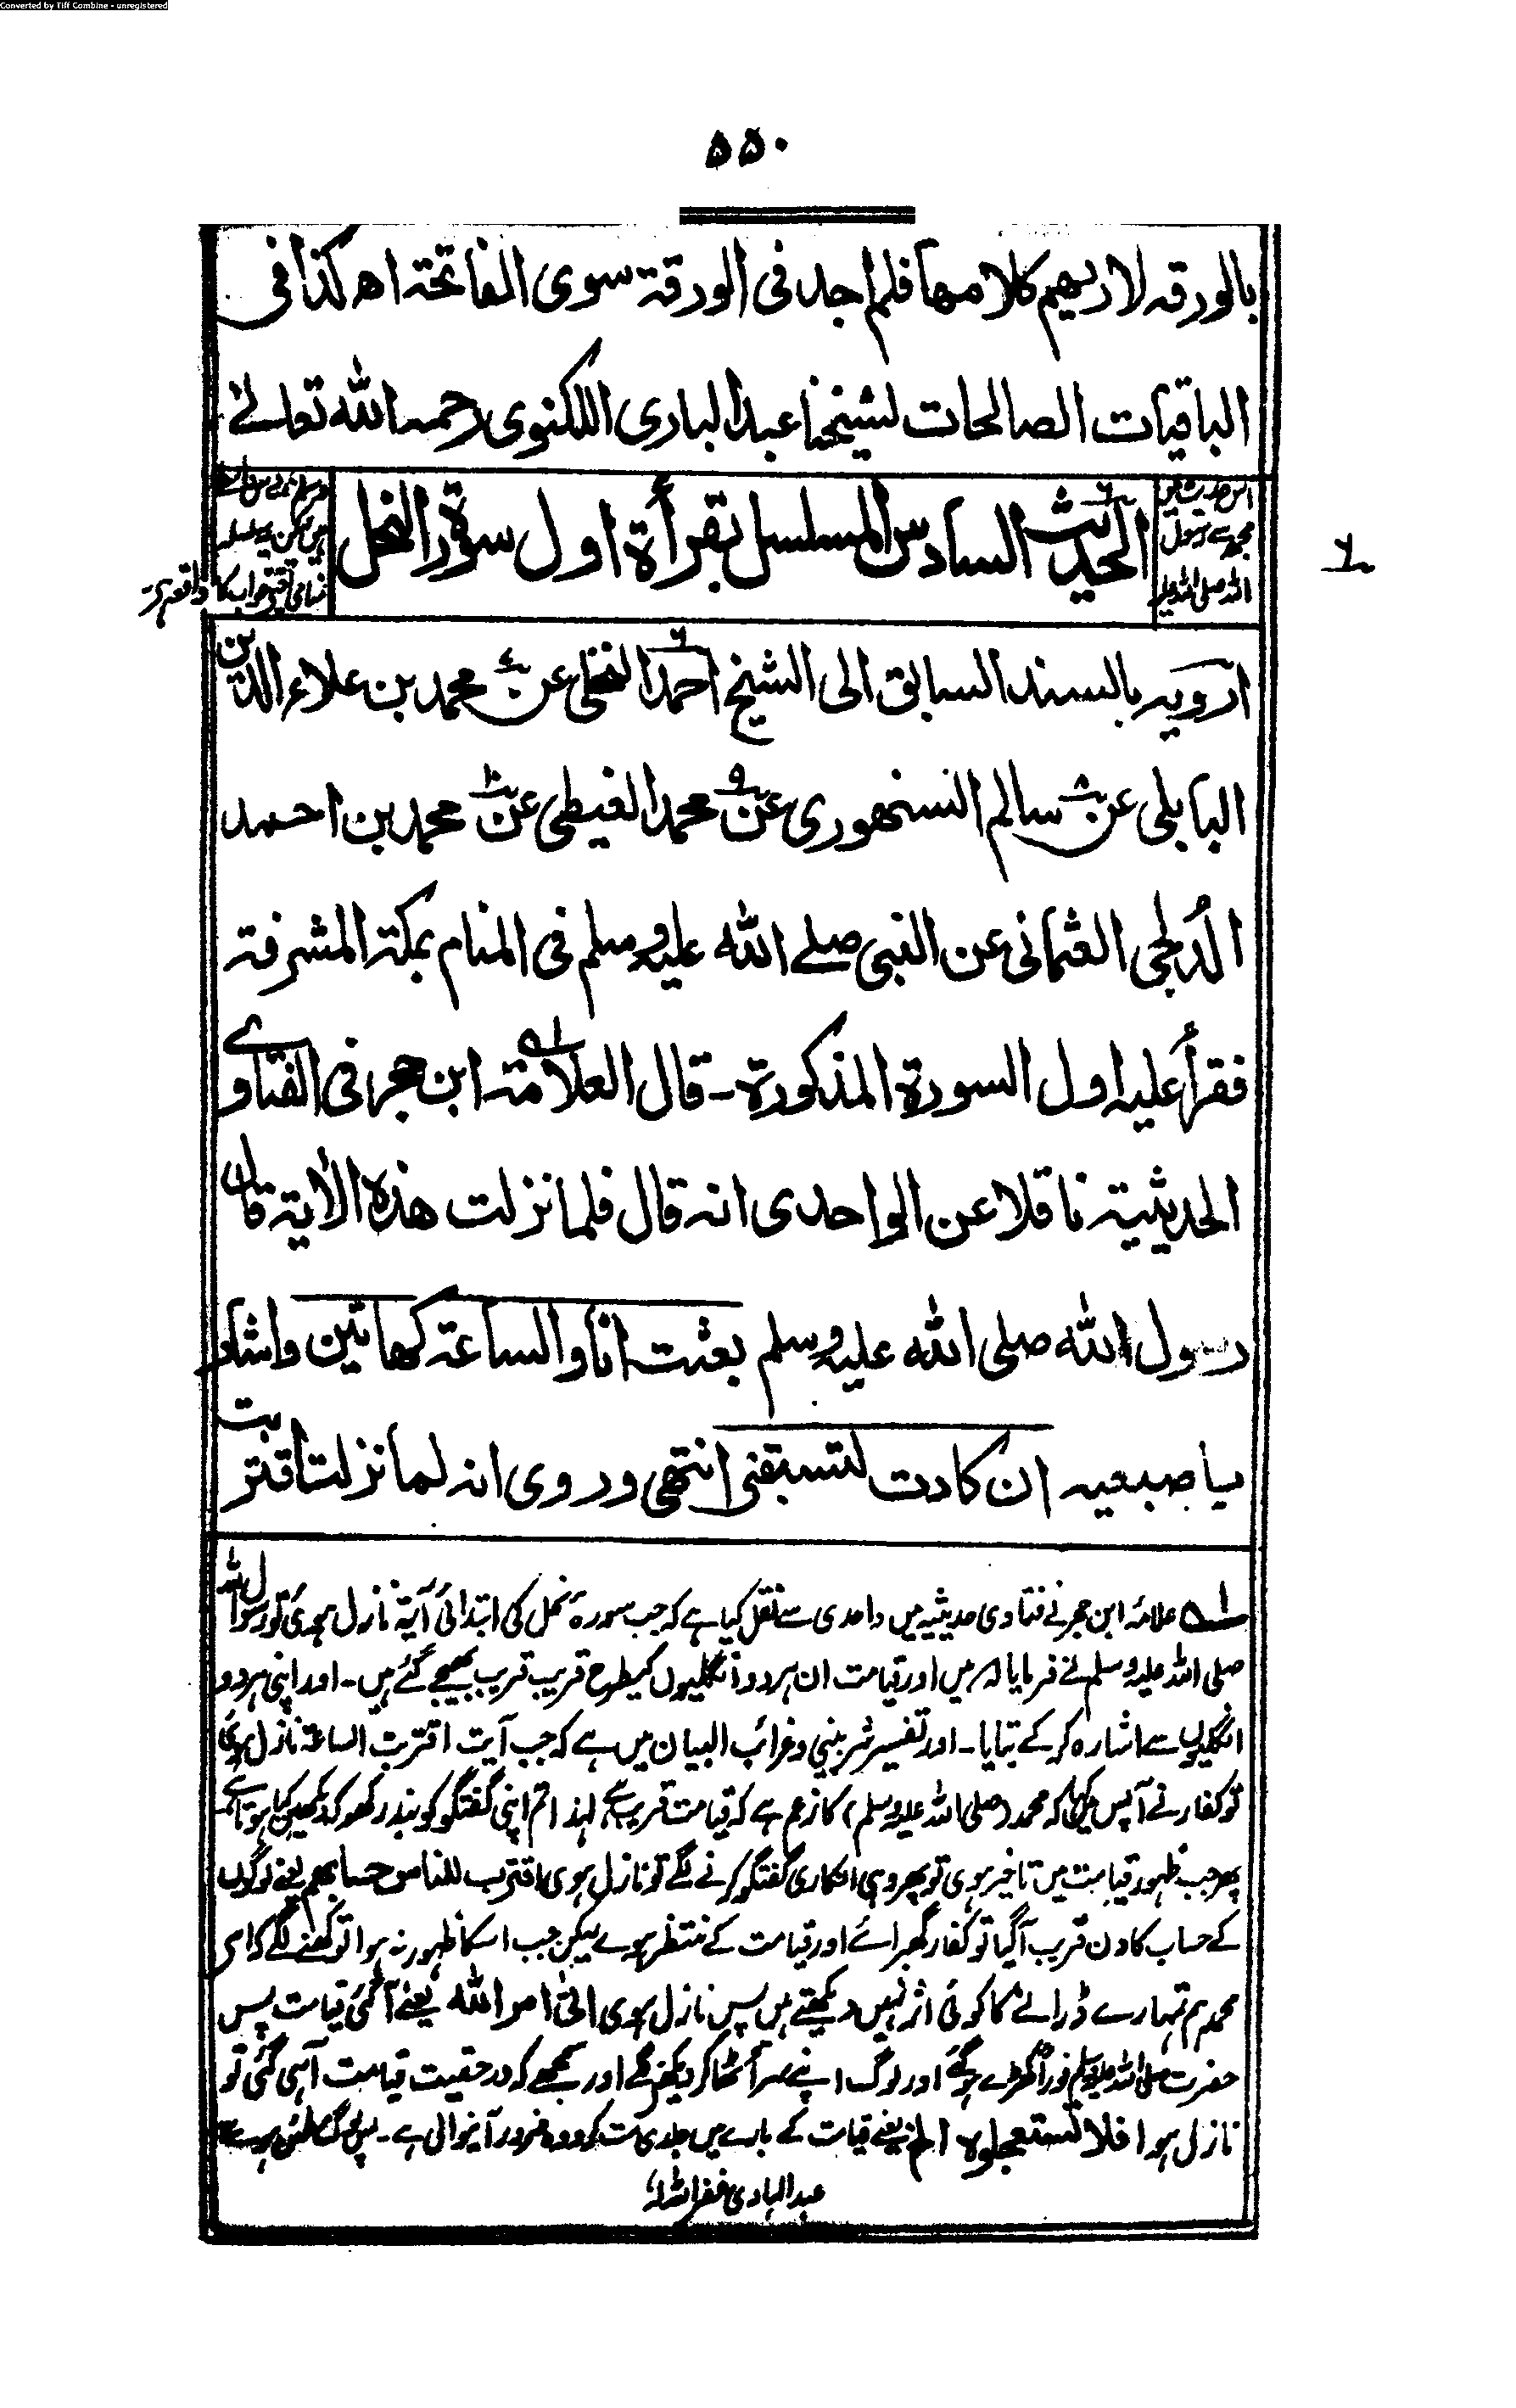 Converted by Tiff Combine - unregistered
۵۵۰
بالورقہ لاریھم کلامھا فلم اجد فی الورقۃ سوی الفاتحۃ اھ کذا فی
الباقیات الصالحات لشیخنا عبد الباری اللکنوی رحمہ اللہ تعالے
الحدیث السادس المسلسل بقرأۃ اول سورۃ النحل
اس حدیث میں
مجھ سے رسول
اللہ صلی اللہ علیہ
۶
ارویہ بالسند السابق الی الشیخ احمد النخلی عن محمد بن علاء الدین
البابلی عن سالم السنھوری عن محمد الغیطی عن محمد بن احمد
الدلجی العثمانی عن النبی صلے اللہ علیہ وسلم فی المنام بمکۃ المشرفۃ
فقرأ علیہ اول السورۃ المذکورۃ ۔ قال العلامۃ ابن حجر فی الفتاوے
الحدیثیۃ ناقلا عن الواحدی انہ قال فلما نزلت ھذہ الاٰیۃ قال
رسول اللہ صلی اللہ علیہ وسلم بعثت انا والساعۃ کھاتین واشار
باصبعیہ ان کادت لتسبقنی انتھی وروی انہ لما نزلت اقتربت
علامہ ابن حجر نے فتاوی حدیثیہ میں واحدی سے نقل کیا ہے کہ جب سورۂ نحل کی ابتدائی آیۃ نازل ہوئی تو رسول اللہ
صلی اللہ علیہ وسلم نے فرمایا کہ میں اور قیامت ان ہر دو انگلیوں کیطرح قریب قریب بھیجے گئے ہیں ۔ اور اپنی ہر دو
انگلیوں سے اشارہ کر کے بتایا ۔ اور تفسیر شربینی و غرائب البیان میں ہے کہ جب آیت اقتربت الساعۃ نازل ہوئی
تو کفار نے آپس میں کہا کہ محمد (صلی اللہ علیہ وسلم) کا زعم ہے کہ قیامت قریب ہے لہذا تم اپنی گفتگو کو بند رکھو کہ دیکھیں کیا ہوتا ہے
پھر جب ظہور قیامت میں تاخیر ہوی تو پھر وہی انکاری گفتگو کرنے لگے تو نازل ہوی اقترب للناس حسابھم یعنے لوگوں
کے حساب کا دن قریب آگیا تو کفار گھبرائے اور قیامت کے منتظر ہوے لیکن جب اسکا ظہور نہ ہوا تو کھنے لگے کہ ای
محمد ہم تمہارے ڈرانے کا کوئی اثر نہیں دیکھتے ہیں پس نازل ہوی اتیٰ امر اللہ یعنے آگئی قیامت پس
حضرت صلی اللہ علیہ وسلم فوراً کھڑے ہوگئے اور لوگ اپنے سر اُٹھا کر دیکھنے لگے اور سمجھے کہ در حقیقت قیامت آہی گئی تو
نازل ہوا فلا تستعجلوہ الخ یعنے قیامت کے بارے میں جلدی مت کرو وہ ضرور آنیوالی ہے ۔ پس لوگ مطمئن ہوے
عبد الہادی غفر اللہ لہٗ